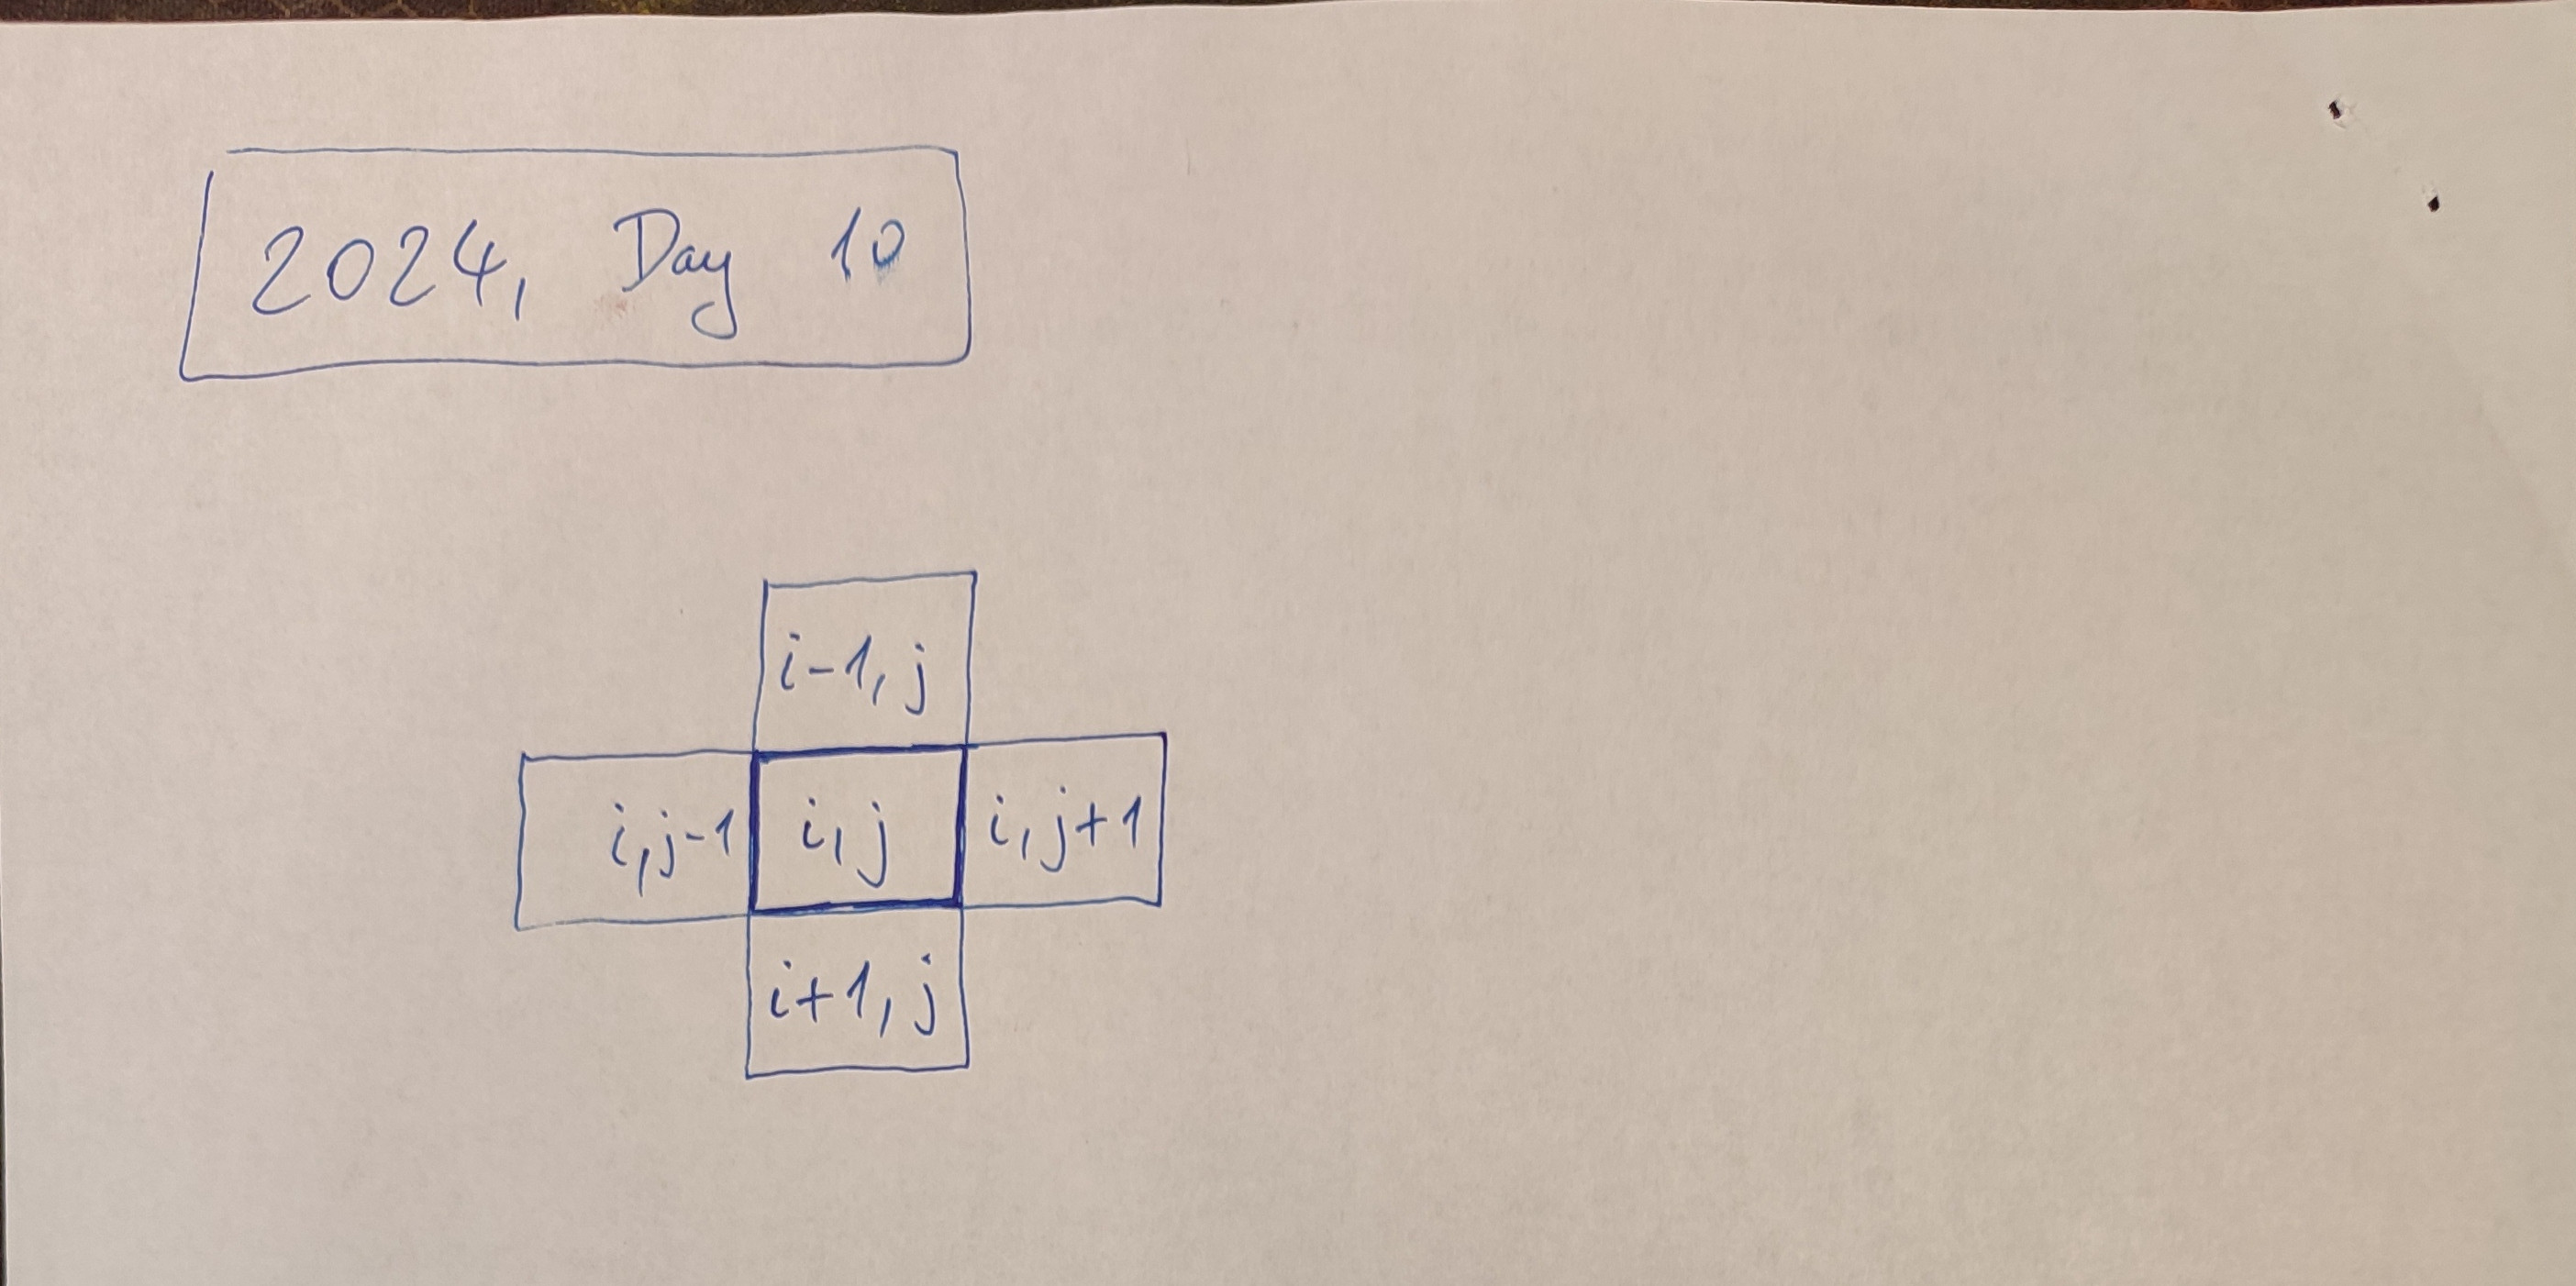 2024, Day 10
i-1, j
i,j-1 i,j i,j+1
i+1,j